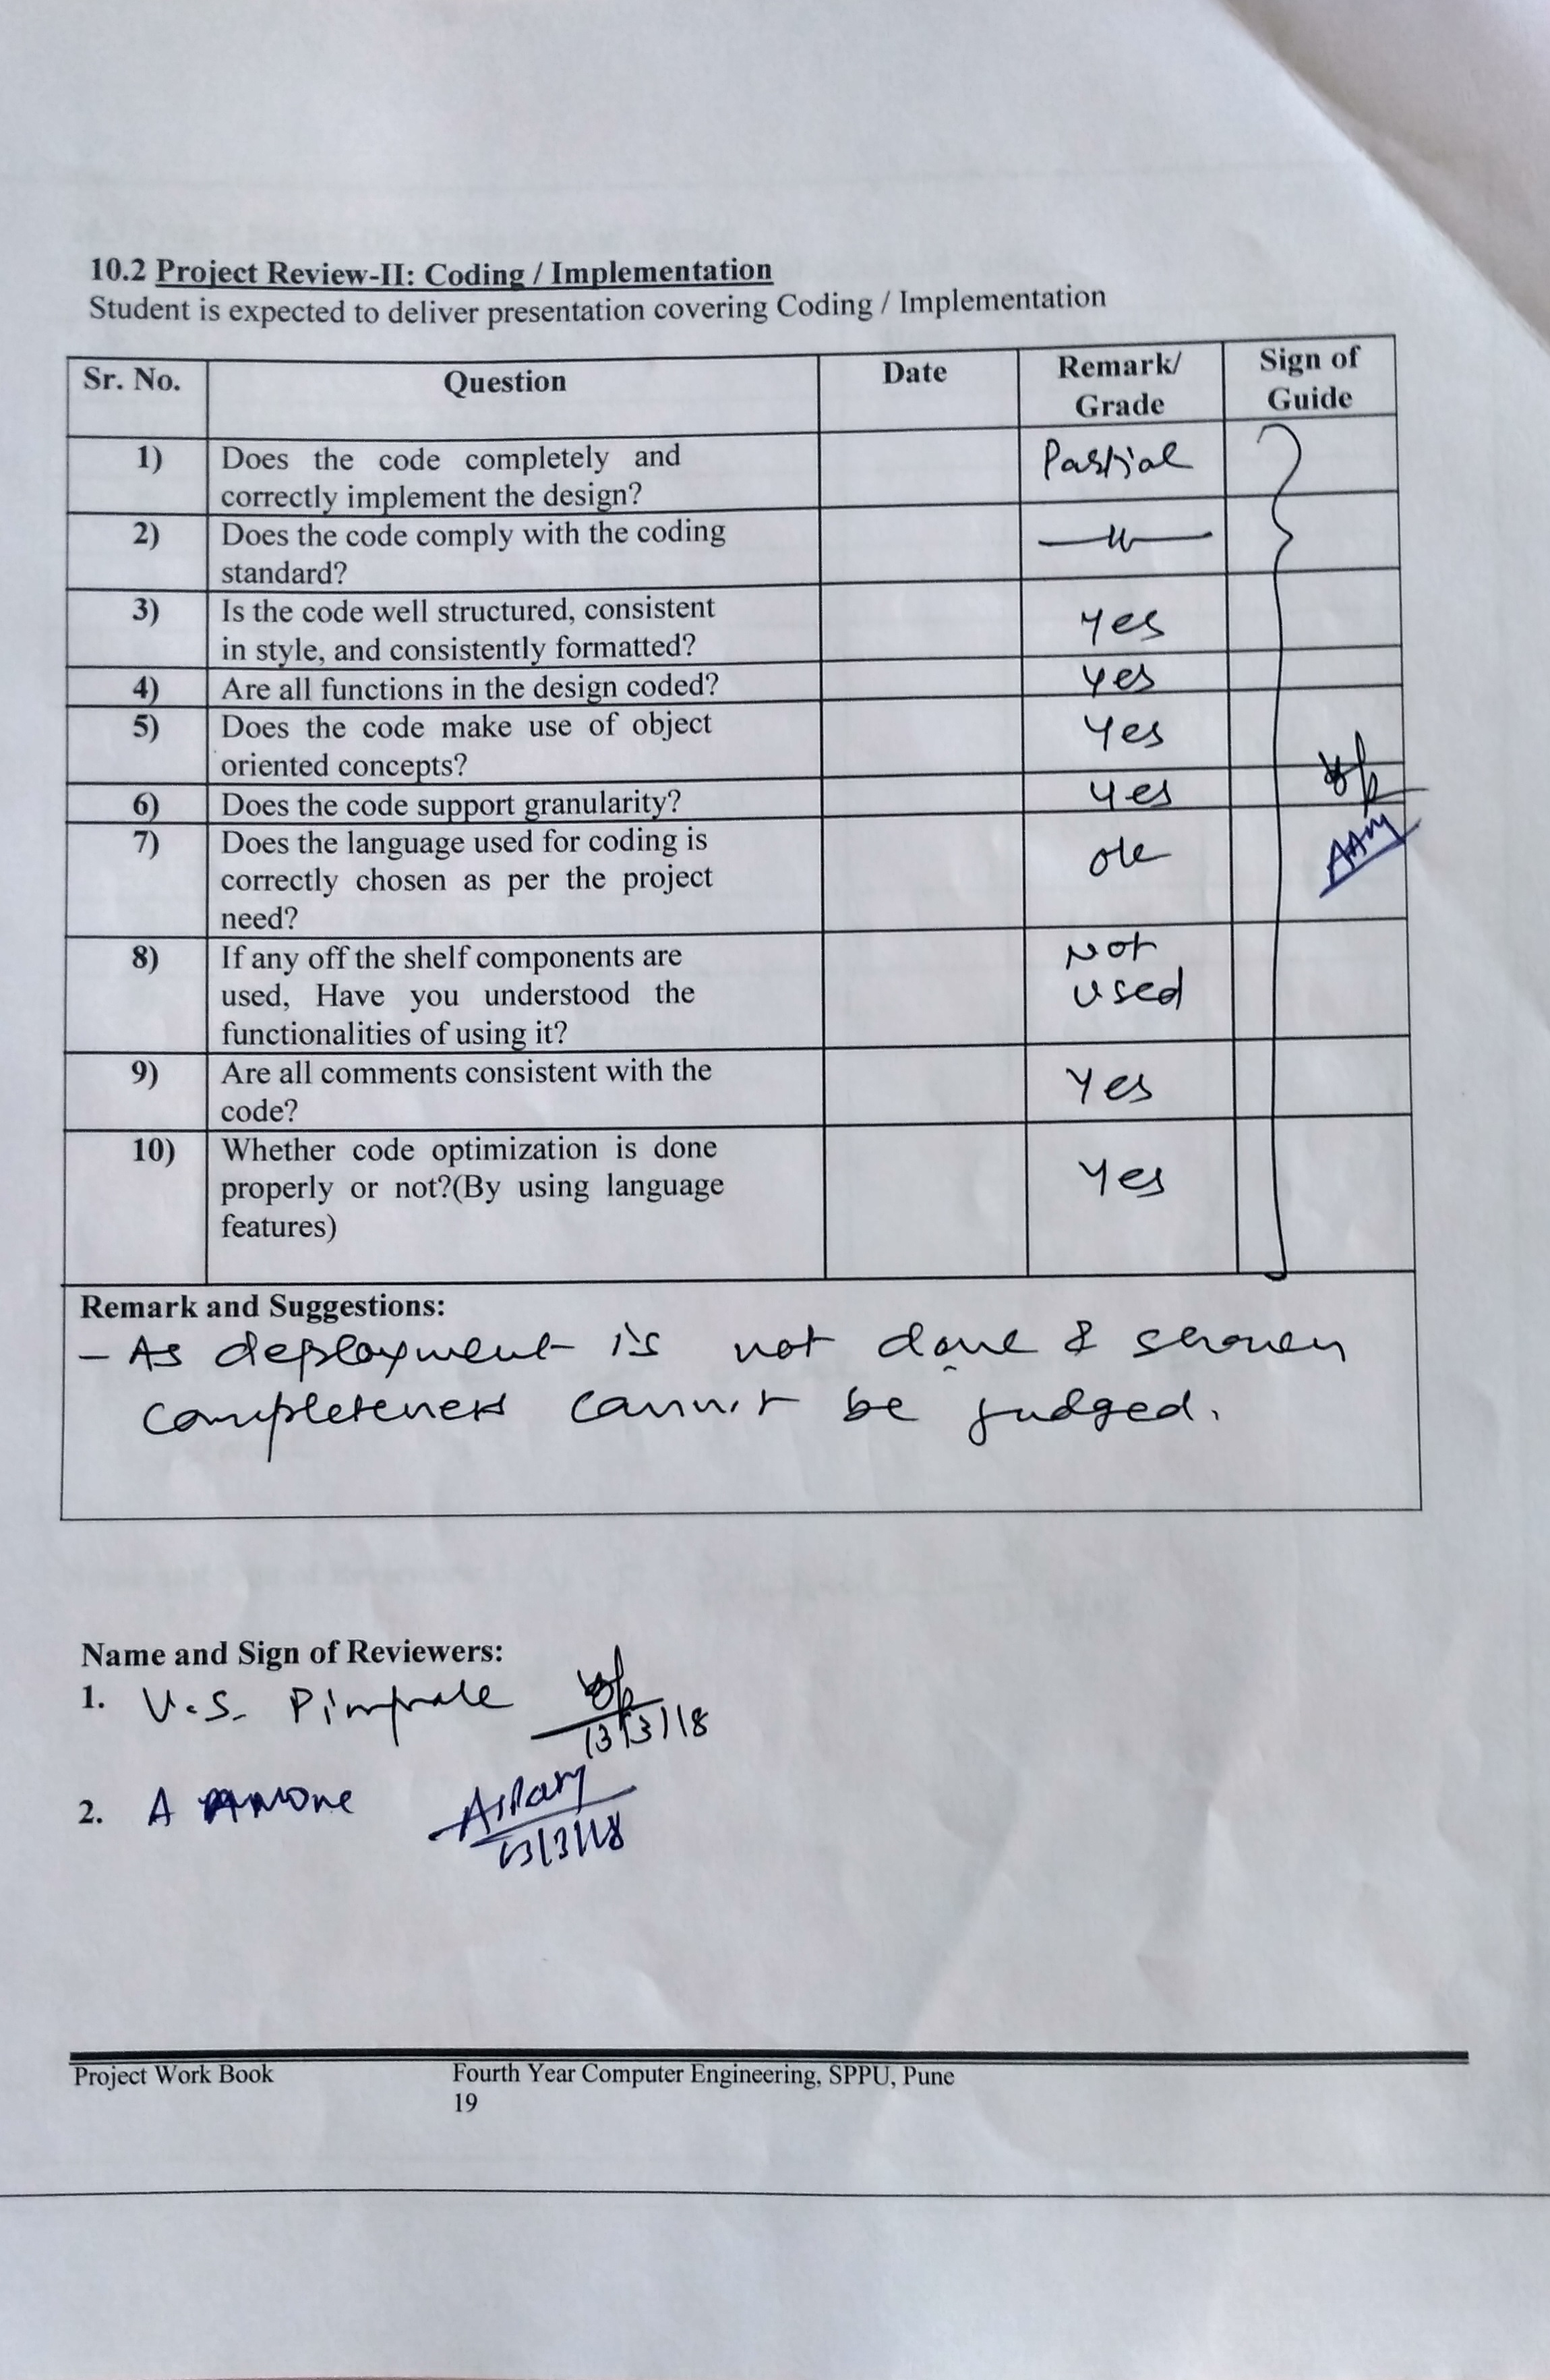 10.2 Project Review-II: Coding / Implementation
Student is expected to deliver presentation covering Coding / Implementation
Sr. No. Question Date Remark/ Grade Sign of Guide
1) Does the code completely and Partial
correctly implement the design?
2) Does the code comply with the coding
standard?
3) Is the code well structured, consistent Yes
in style, and consistently formatted?
4) Are all functions in the design coded? Yes
5) Does the code make use of object Yes
oriented concepts?
6) Does the code support granularity? Yes
7) Does the language used for coding is ok
correctly chosen as per the project
need?
8) If any off the shelf components are Not
used, Have you understood the used
functionalities of using it?
9) Are all comments consistent with the Yes
code?
10) Whether code optimization is done Yes
properly or not?(By using language
features)
Remark and Suggestions:
- As deployment is not done & shown
completeness cannot be judged.
Name and Sign of Reviewers:
1. V.S. Pimprale
13/3/18
2. A
13/3/18
Project Work Book Fourth Year Computer Engineering, SPPU, Pune
19